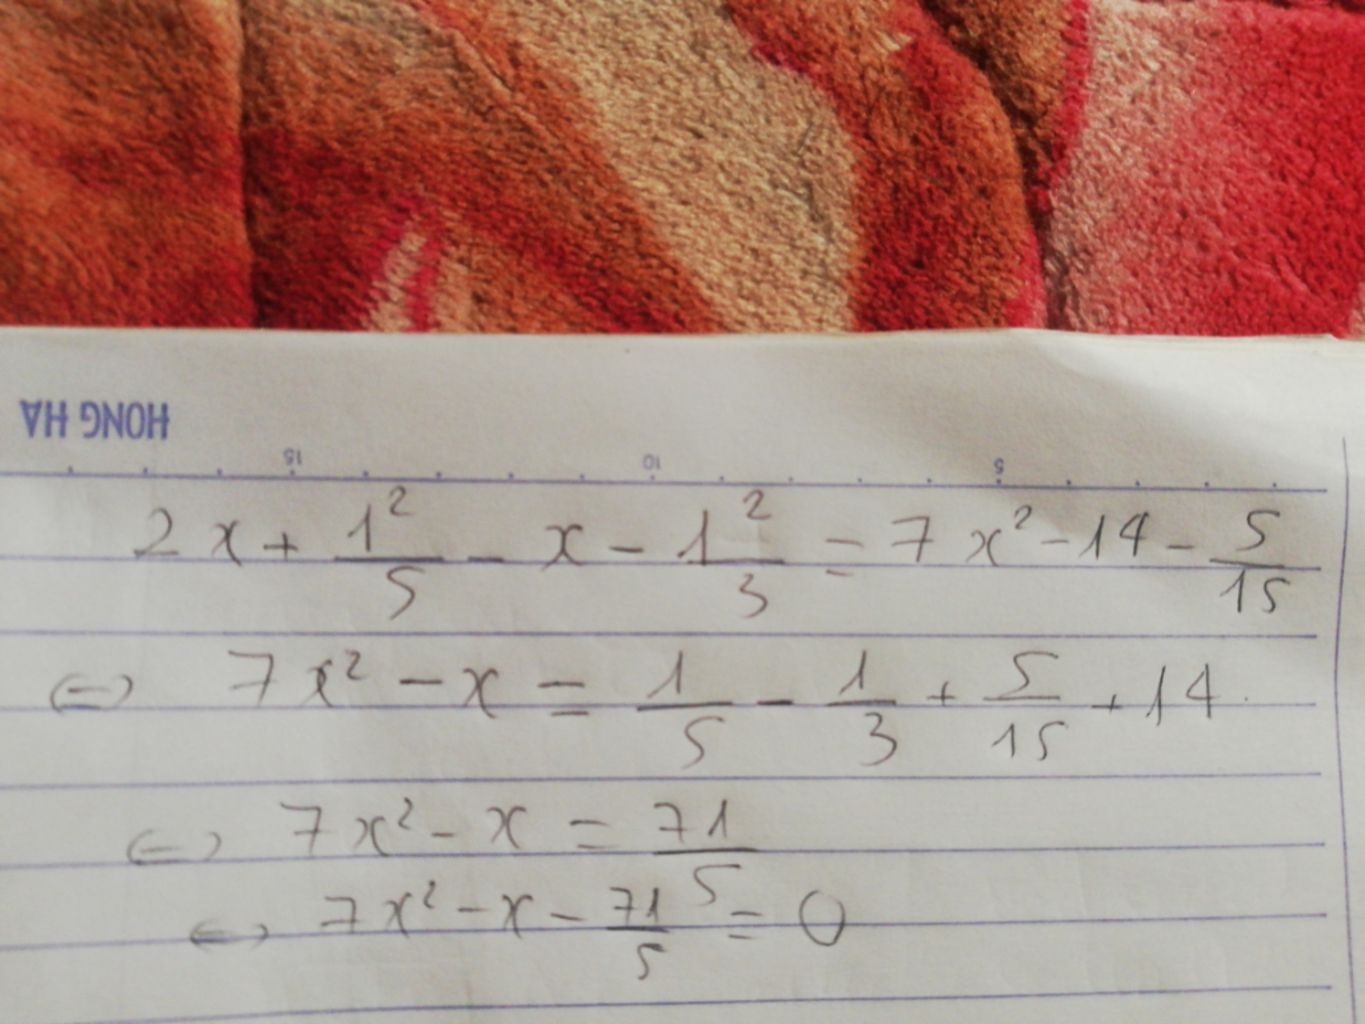 HONG HA
15 10 5
2x + 1²/5 - x - 1²/3 = 7x² - 14 - 5/15
⇔ 7x² - x = 1/5 - 1/3 + 5/15 + 14
⇔ 7x² - x = 71/5
⇔ 7x² - x - 71/5 = 0